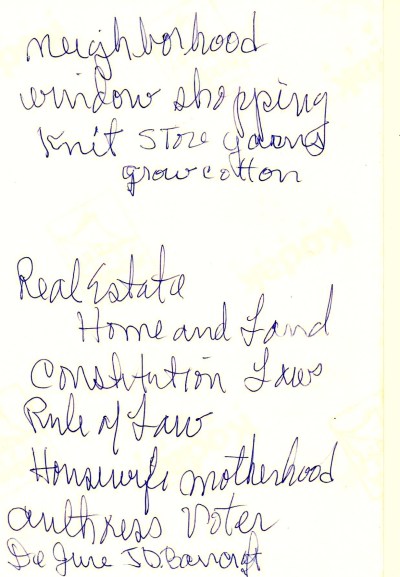 neighborhood
window shopping
Knit STORE yarns
grow cotton
Real Estate
Home and Land
Constitution Laws
Rule of Law
Housewife motherhood
Voter
De Jure J.D.